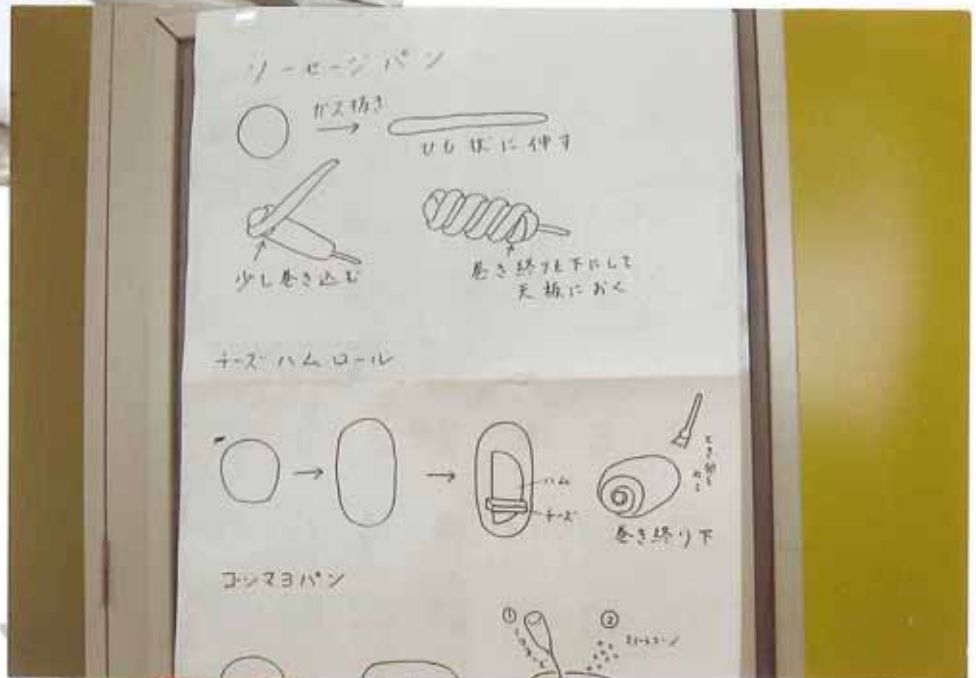 ソーセージパン
ガス抜き
ひも状に伸す
少し巻き込む
巻き終りを下にして
天板におく
チーズハムロール
ハム
チーズ
とき卵を
ぬる
巻き終り下
コーンマヨパン
①
②
スイートコーン